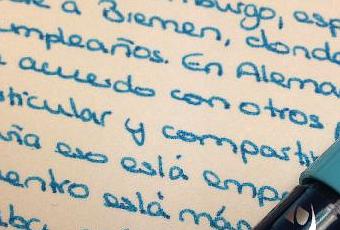 a Bremen, donde
umpleaños. En Alema
acuerdo con otros
ticular y compartí
ña eso está emp
entro está más